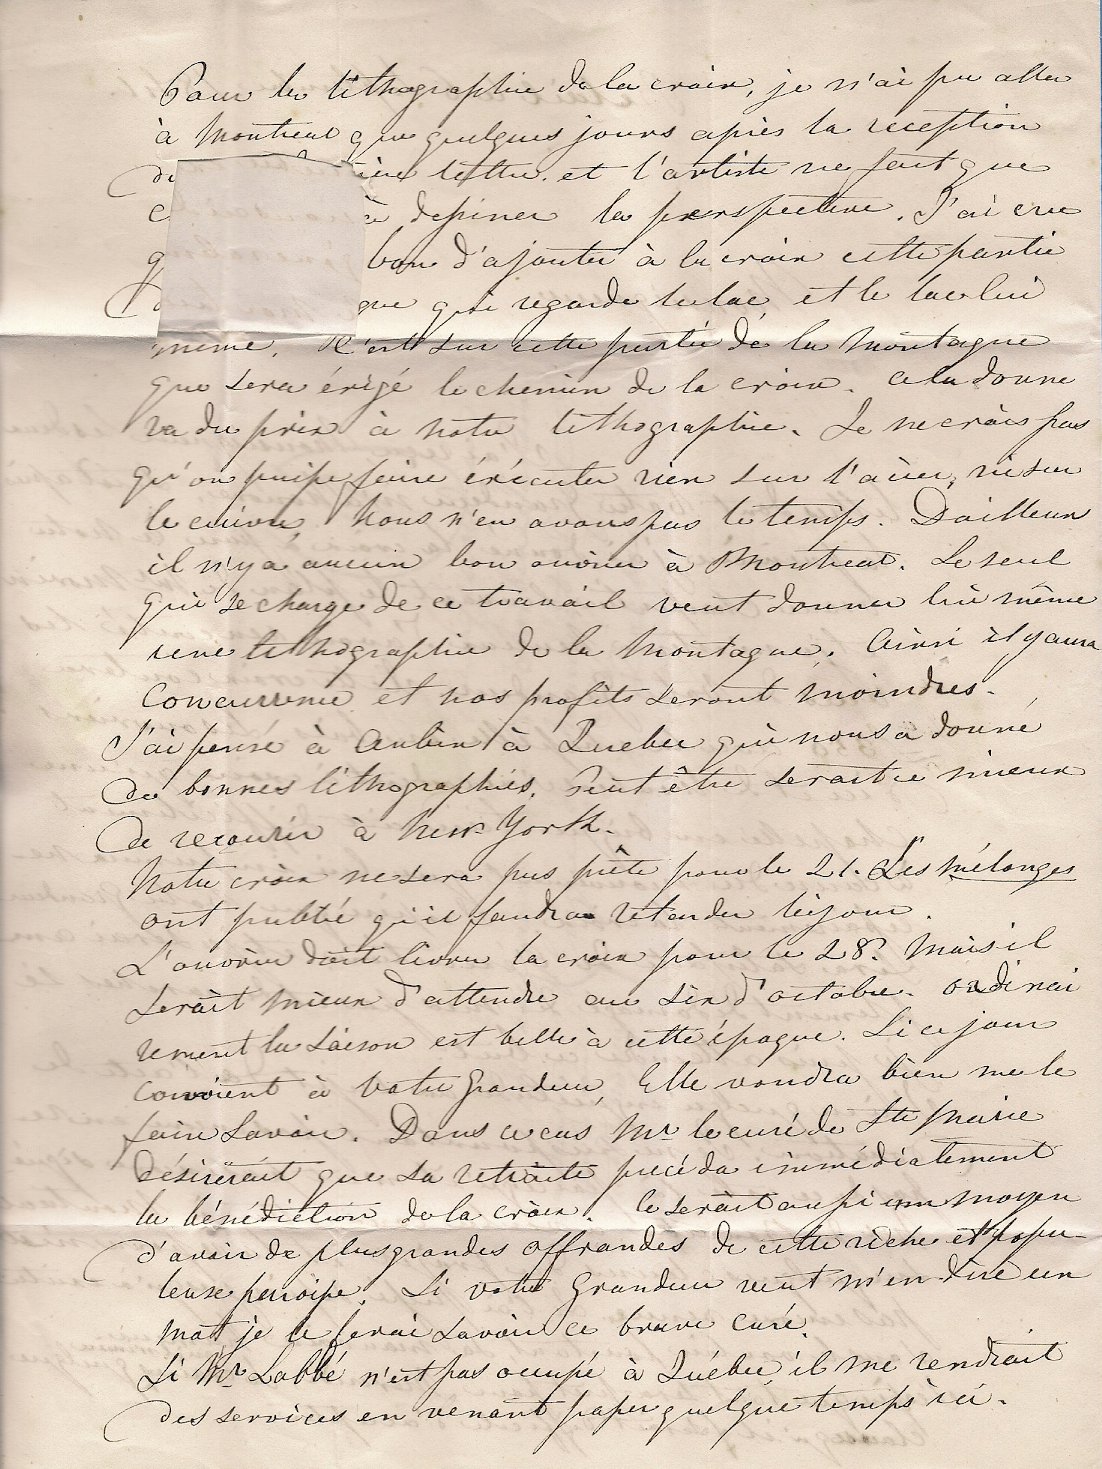 Pour la lithographie de la croix, je n'ai pu aller
à Montreal que quelques jours après la reception
de lettre et l'artiste ne fait que
à dessiner la perspective. J'ai cru
bon d'ajouter à la croix cette partie
que qui regarde le lac et le lac lui
même. C'est sur cette partie de la montagne
que sera érigé le chemin de la croix. Cela donne
ra du prix à notre lithographie. Je ne crois pas
qu'on puisse faire éxécuter rien sur l'acier, ni sur
le cuivre, nous n'en avons pas le temps. Dailleurs
il n'y a aucun bon ouvrier à Montreal. Le seul
qui se charge de ce travail veut donner lui même
une lithographie de la montagne. Ainsi il y aura
concurrence et nos profits seront moindres.
J'ai pensé à Aubin à Quebec qui nous a donné
de bonnes lithographies. Peut être serait ce mieux
de recourir à New York.
Notre croix ne sera pas prête pour le 21. Les Mélanges
ont publié qu'il faudra retarder le jour.
L'ouvrier doit livrer la croix pour le 28. Mais il
serait mieux d'attendre au six d'octobre. Ordinai
rement la saison est belle à cette époque. Si ce jour
convient à Votre Grandeur, Elle voudra bien me le
faire savoir. Dans ce cas Mr le curé de Ste Marie
désirerait que sa retraite précéda immédiatement
la bénédiction de la croix. Ce serait aussi un moyen
d'avoir de plus grandes offrandes de cette riche et popu-
leuse paroisse. Si votre Grandeur veut m'en dire un
mot je le ferai savoir à ce brave curé.
Si Mr Labbé n'est pas occupé à Québec, il me rendrait
des services en venant passer quelque temps ici.